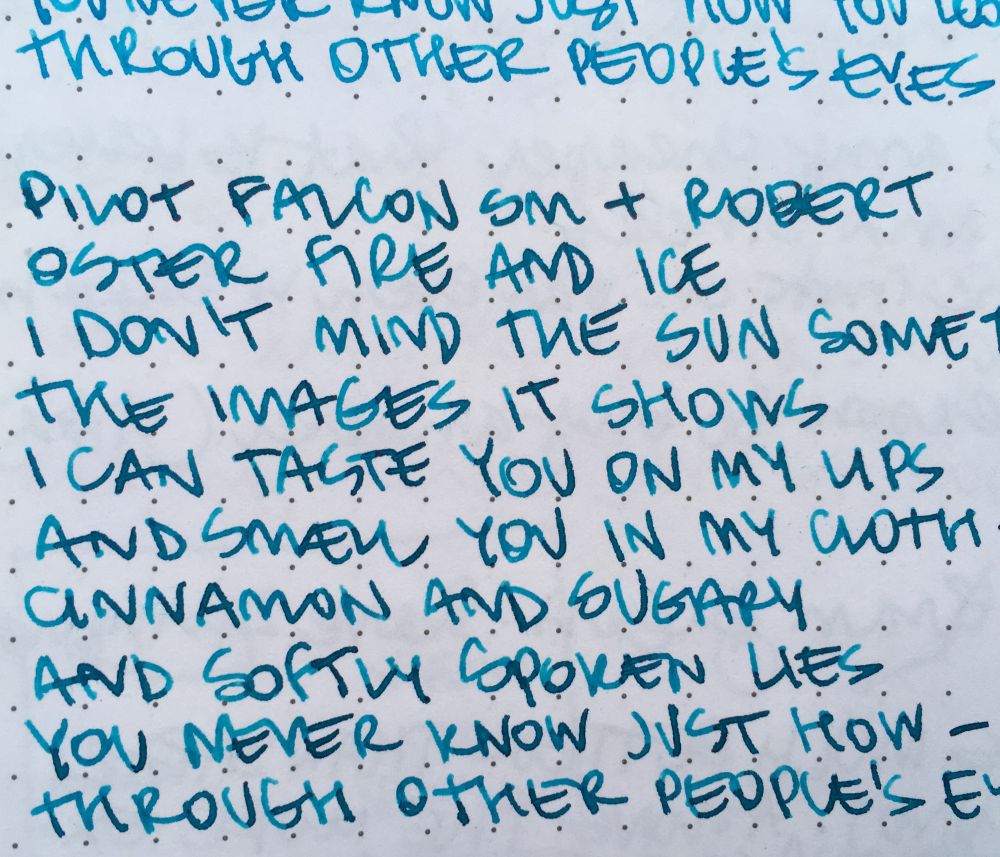 YOU NEVER KNOW JUST HOW YOU LOO
THROUGH OTHER PEOPLE'S EYES
PILOT FALCON SM + ROBERT
OSTER FIRE AND ICE
I DON'T MIND THE SUN SOMET
THE IMAGES IT SHOWS
I CAN TASTE YOU ON MY LIPS
AND SMELL YOU IN MY CLOTH
CINNAMON AND SUGARY
AND SOFTLY SPOKEN LIES
YOU NEVER KNOW JUST HOW -
THROUGH OTHER PEOPLE'S EY